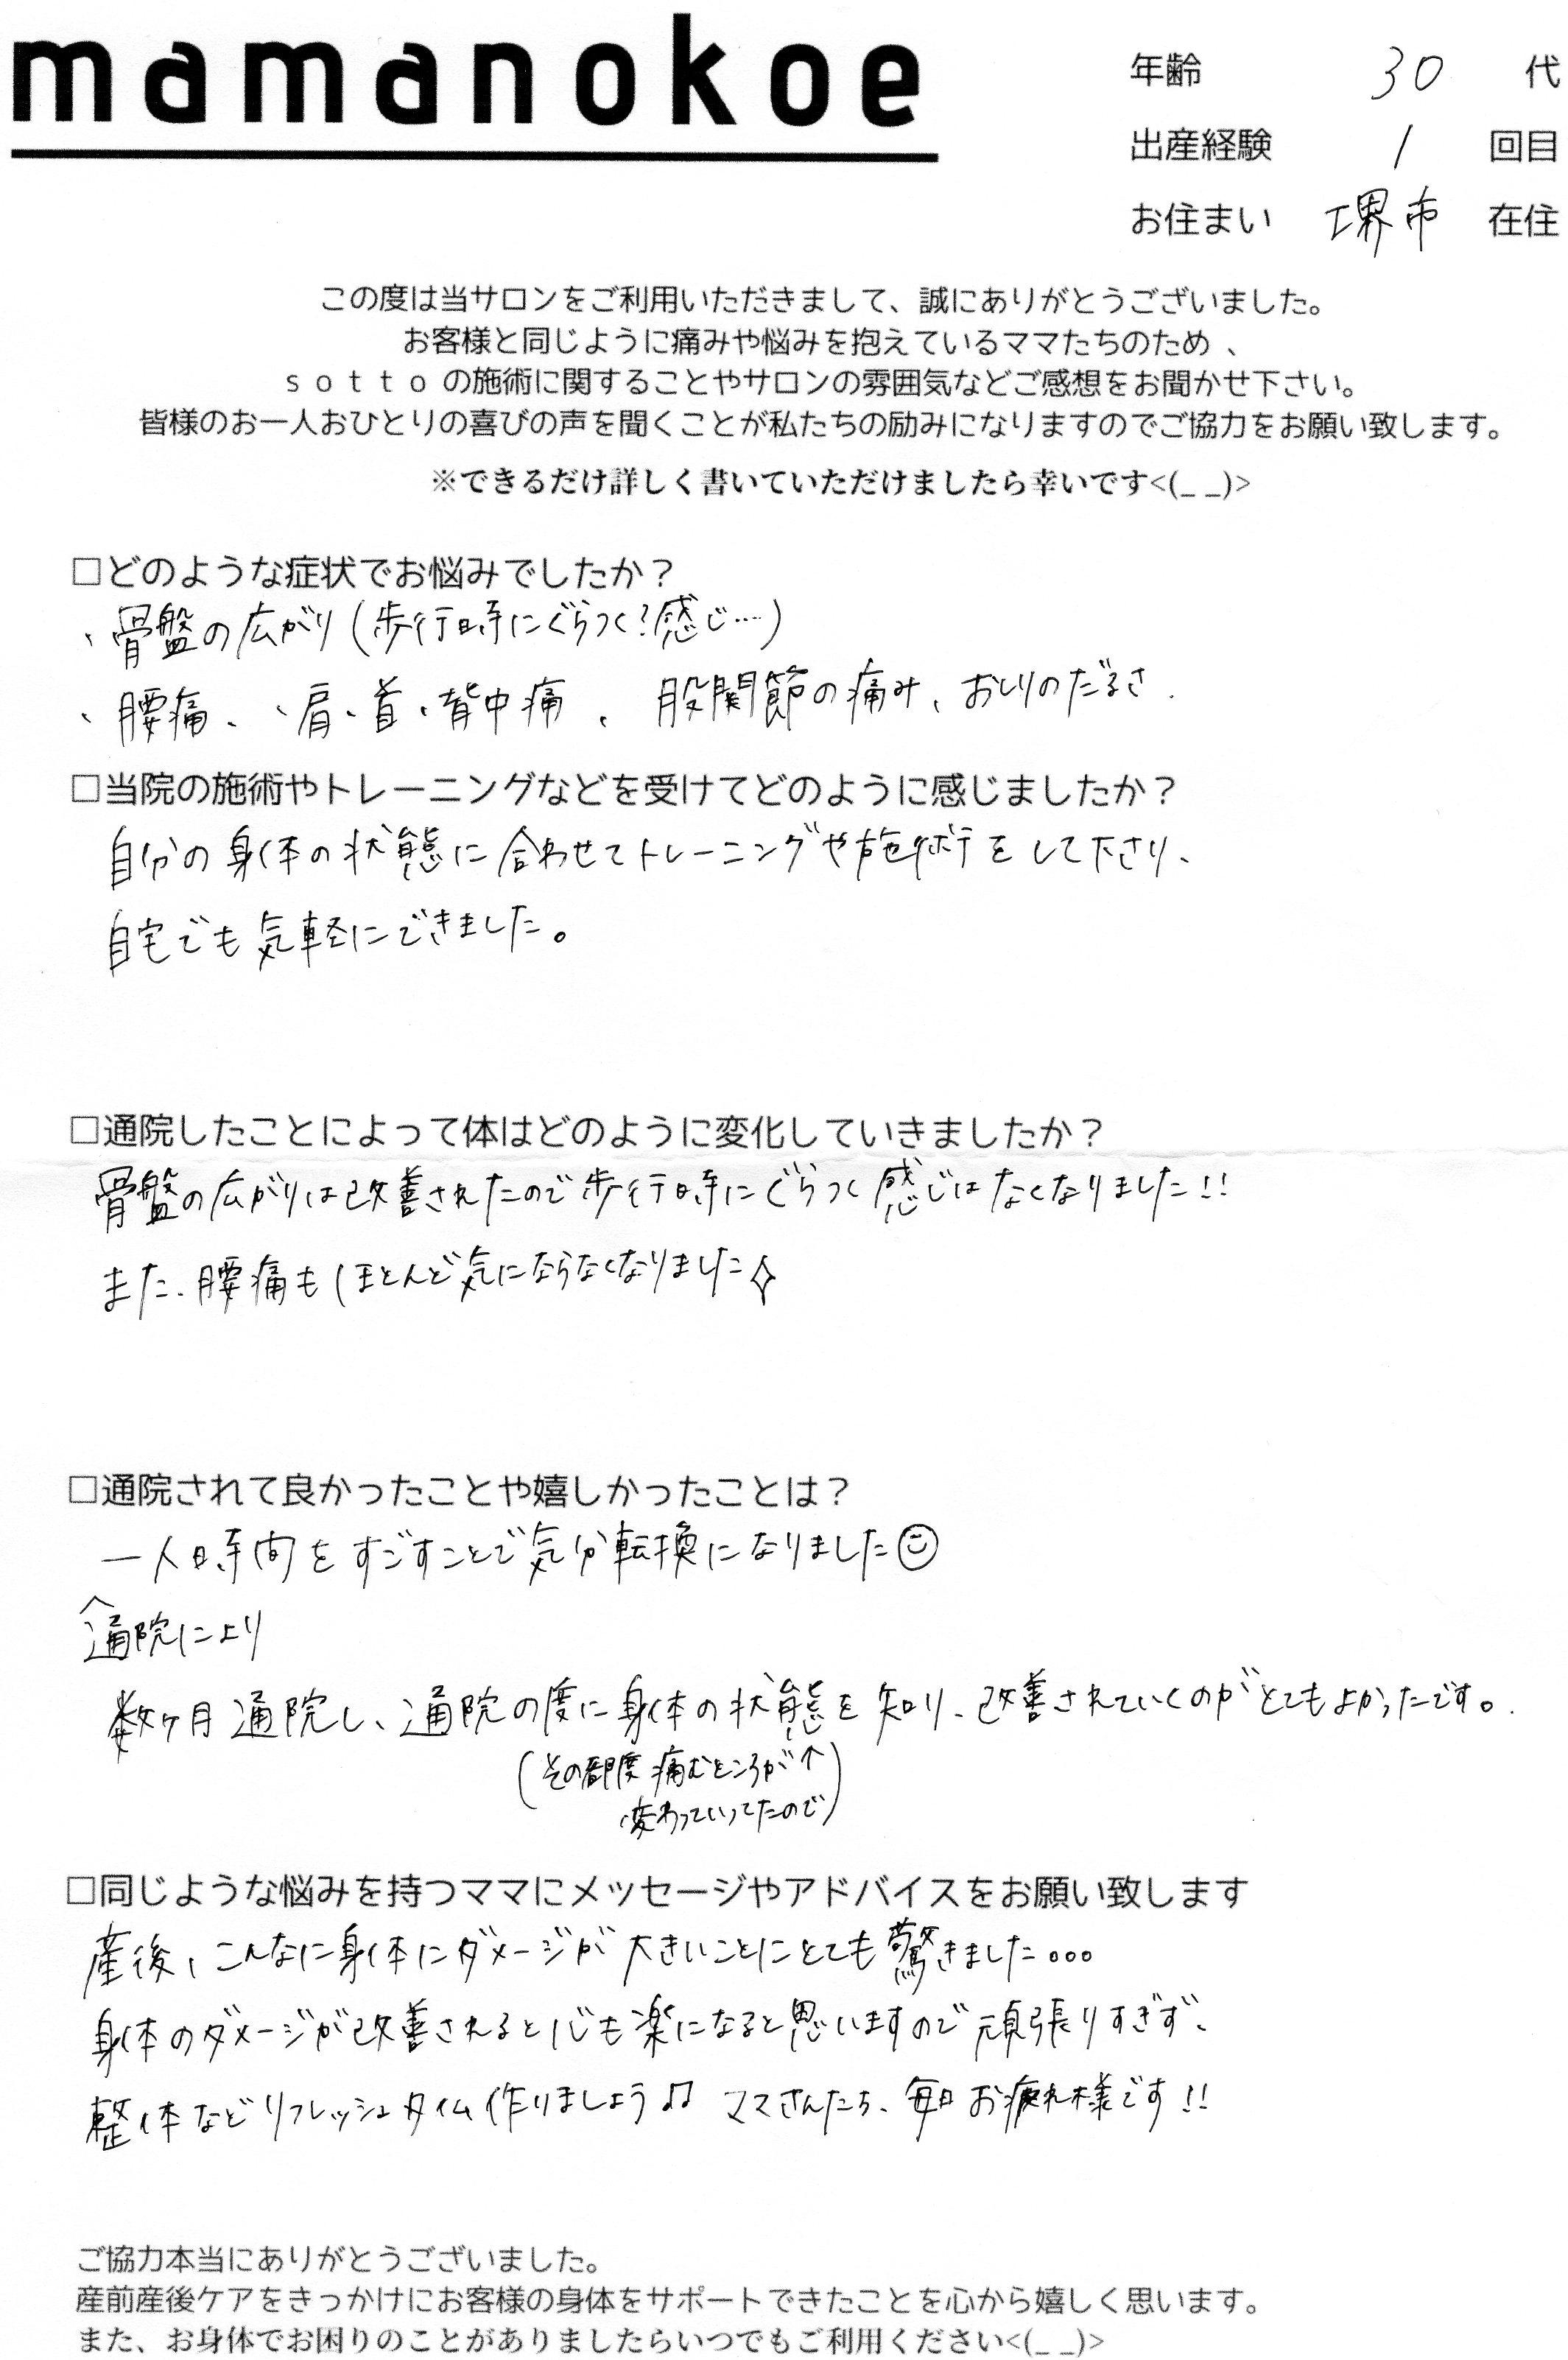 mamanokoe
年齢 30 代
出産経験 1 回目
お住まい 堺市 在住
この度は当サロンをご利用いただきまして、誠にありがとうございました。
お客様と同じように痛みや悩みを抱えているママたちのため 、
sottoの施術に関することやサロンの雰囲気などご感想をお聞かせ下さい。
皆様のお一人おひとりの喜びの声を聞くことが私たちの励みになりますのでご協力をお願い致します。
※できるだけ詳しく書いていただけましたら幸いです<(_ _)>
□どのような症状でお悩みでしたか？
、骨盤の広がり(歩行時にぐらつく?感じ…)
、腰痛、、肩・首・背中痛 、 股関節の痛み、おしりのだるさ.
□当院の施術やトレーニングなどを受けてどのように感じましたか？
自分の身体の状態に合わせてトレーニングや施術をして下さり、
自宅でも気軽にできました。
□通院したことによって体はどのように変化していきましたか？
骨盤の広がりは改善されたので歩行時にぐらつく感じはなくなりました!!
また、腰痛もほとんど気にならなくなりました✧
□通院されて良かったことや嬉しかったことは？
一人時間をすごすことで気分転換になりました☺
^通院により
数ヶ月通院し、通院の度に身体の状態を知り、改善されていくのがとてもよかったです。
(その都度痛むところが↑
変わっていってたので)
□同じような悩みを持つママにメッセージやアドバイスをお願い致します
産後、こんなに身体にダメージが大きいことにとても驚きました...
身体のダメージが改善されると心も楽になると思いますので頑張りすぎず、
整体などリフレッシュタイム作りましょう♫ ママさんたち、毎日お疲れ様です!!
ご協力本当にありがとうございました。
産前産後ケアをきっかけにお客様の身体をサポートできたことを心から嬉しく思います。
また、お身体でお困りのことがありましたらいつでもご利用ください<(_ _)>